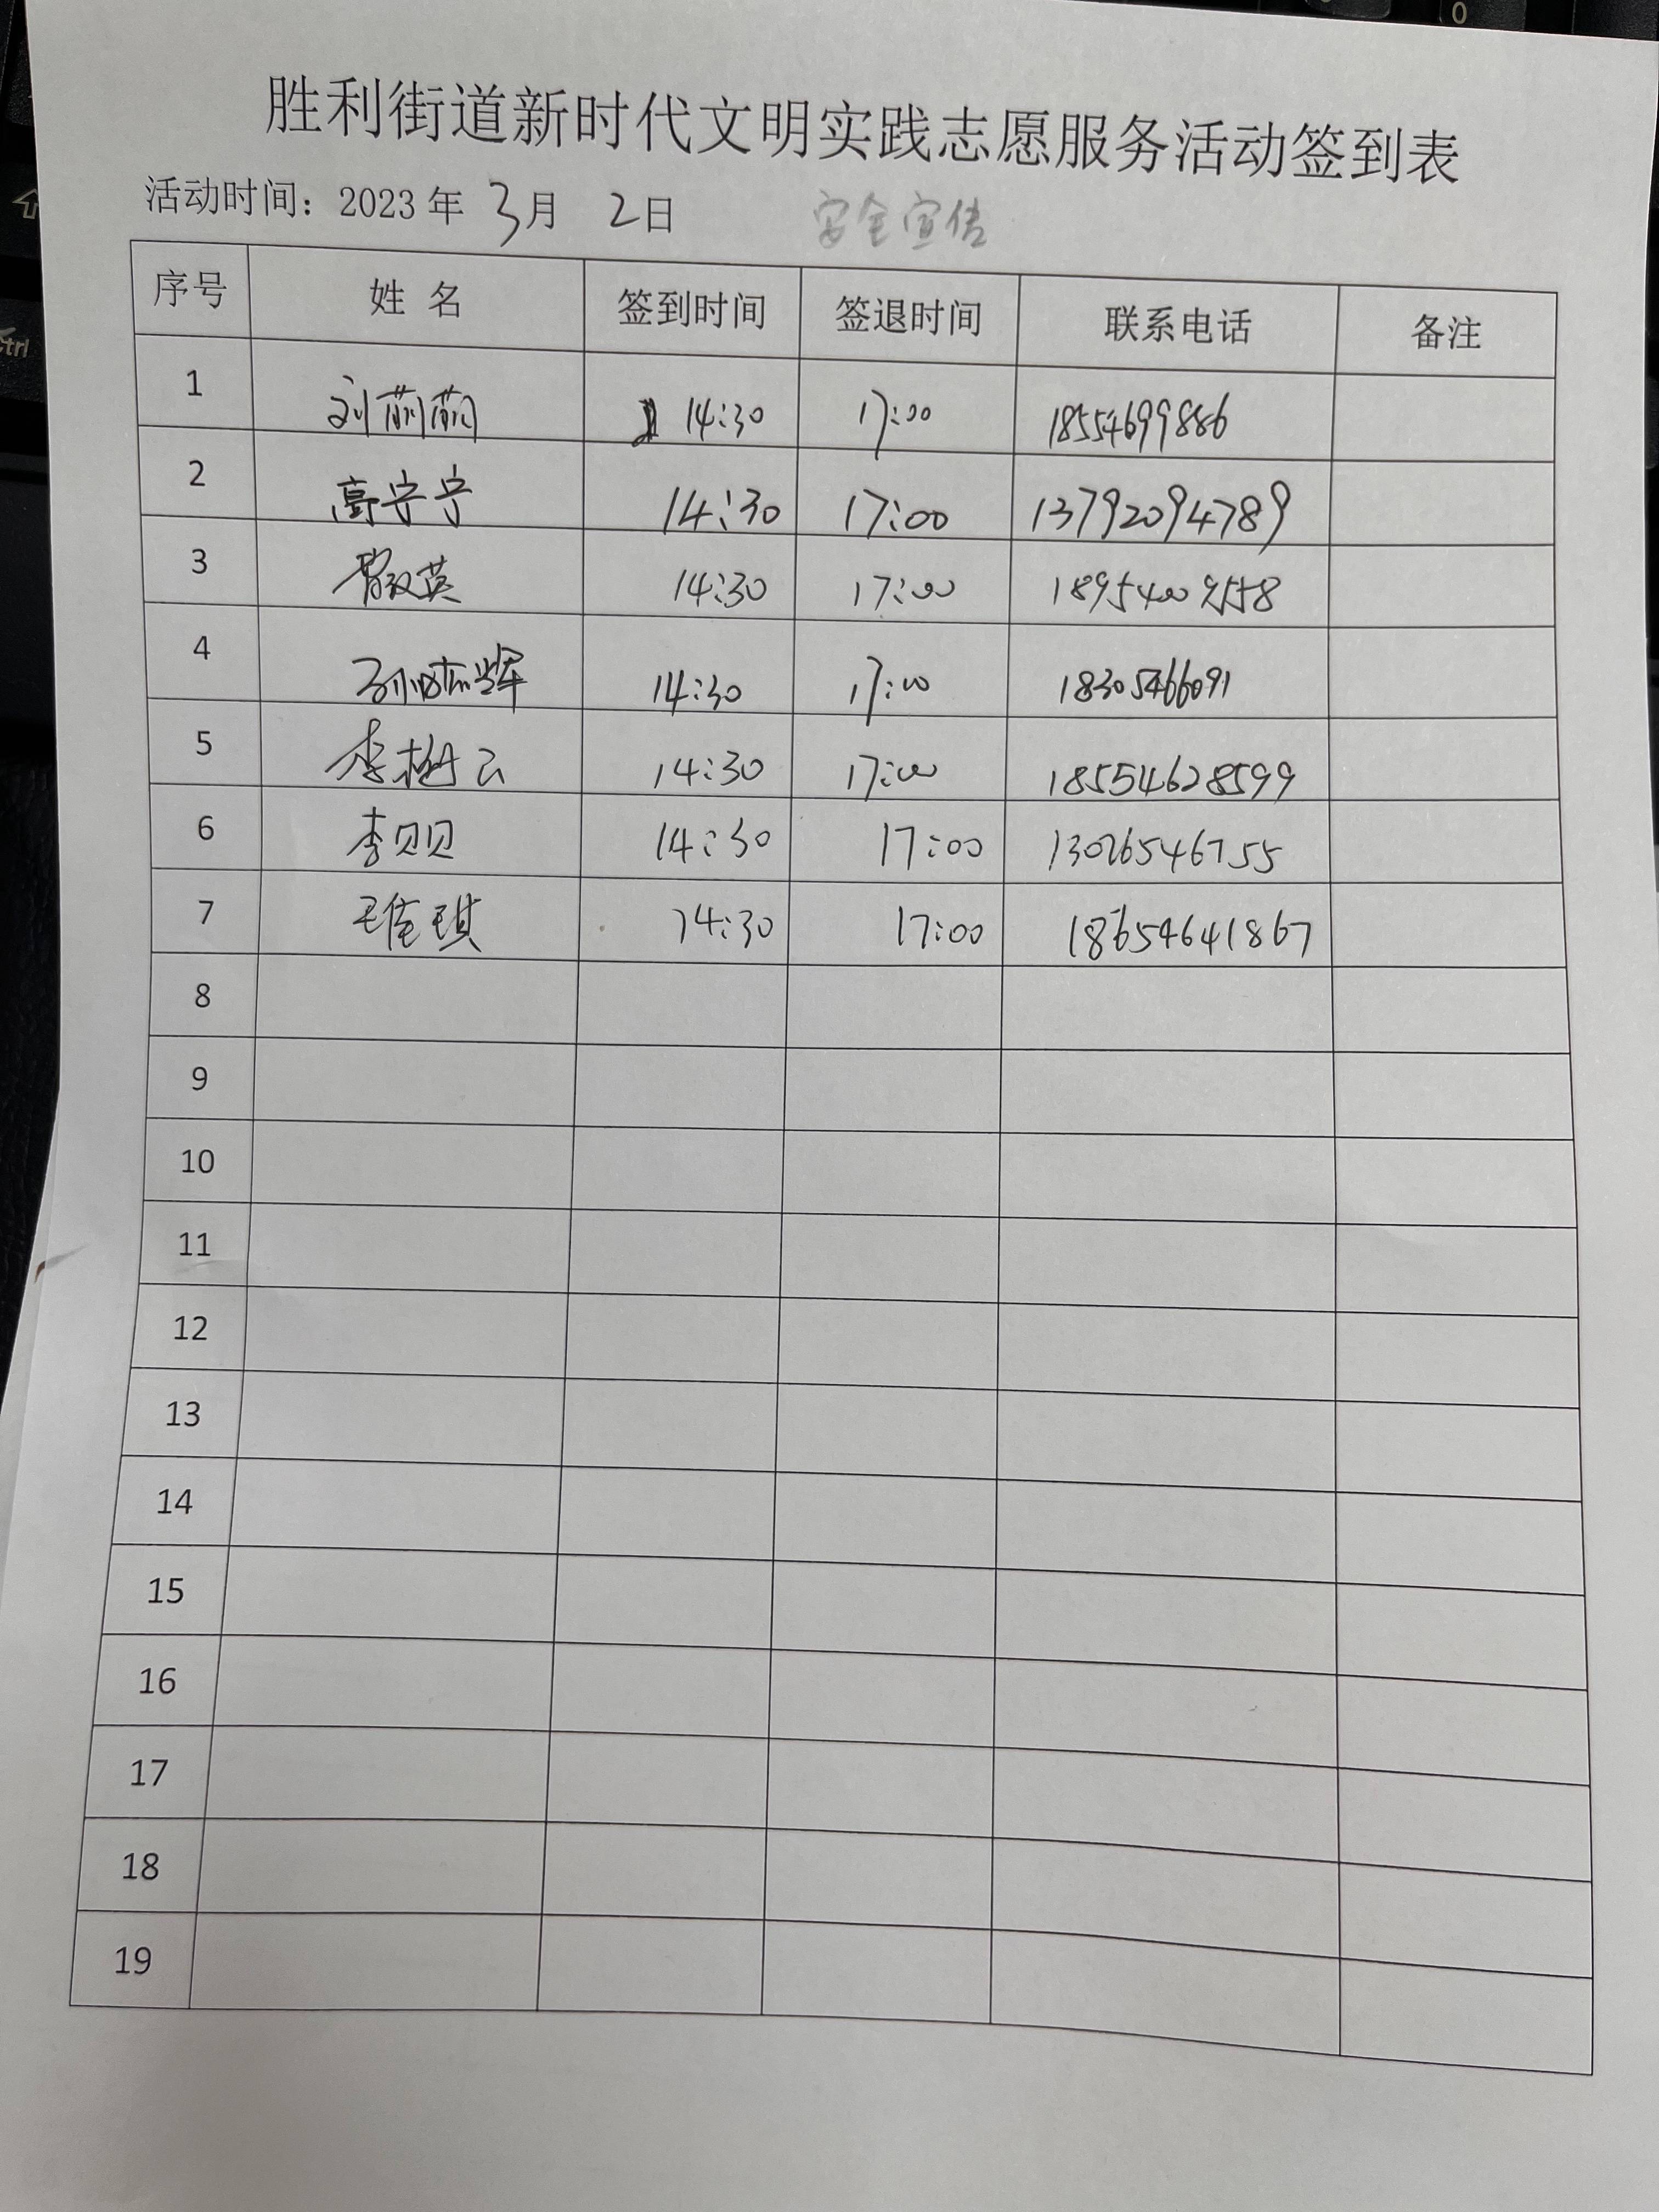 胜利街道新时代文明实践志愿服务活动签到表
活动时间：2023年 3月 2日 安全宣传
序号 姓名 签到时间 签退时间 联系电话 备注
1 刘萌萌 14:30 17:00 18554699886
2 高宁宁 14:30 17:00 13792094789
3 14:30 17:00 18954009558
4 14:30 17:00 18305466091
5 14:30 17:00 18554628599
6 李贝贝 14:30 17:00 13026546755
7 王佳琪 14:30 17:00 18654641867
8
9
10
11
12
13
14
15
16
17
18
19
Ctrl
0